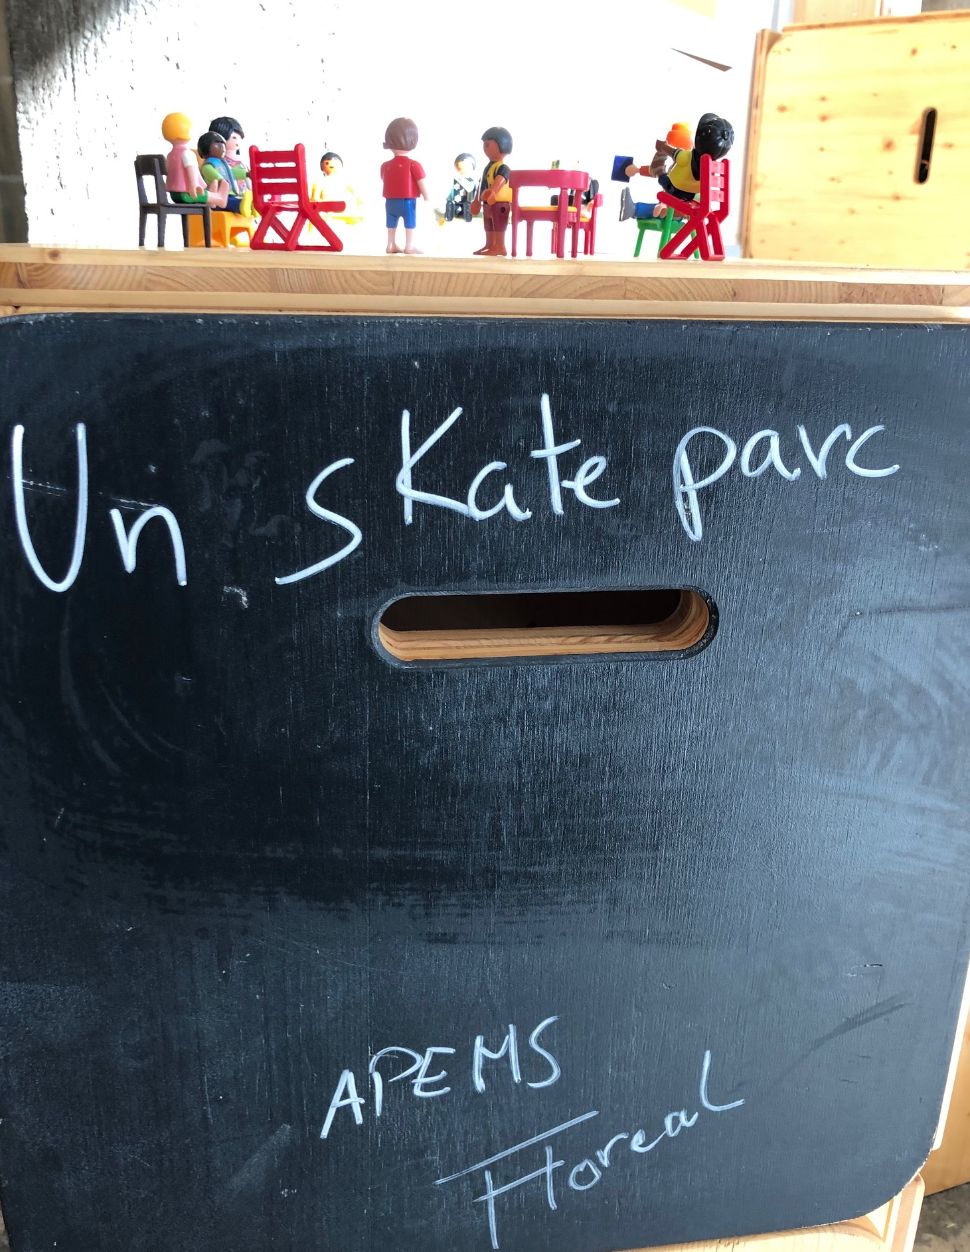 Un skate parc
APEMS
Floreal